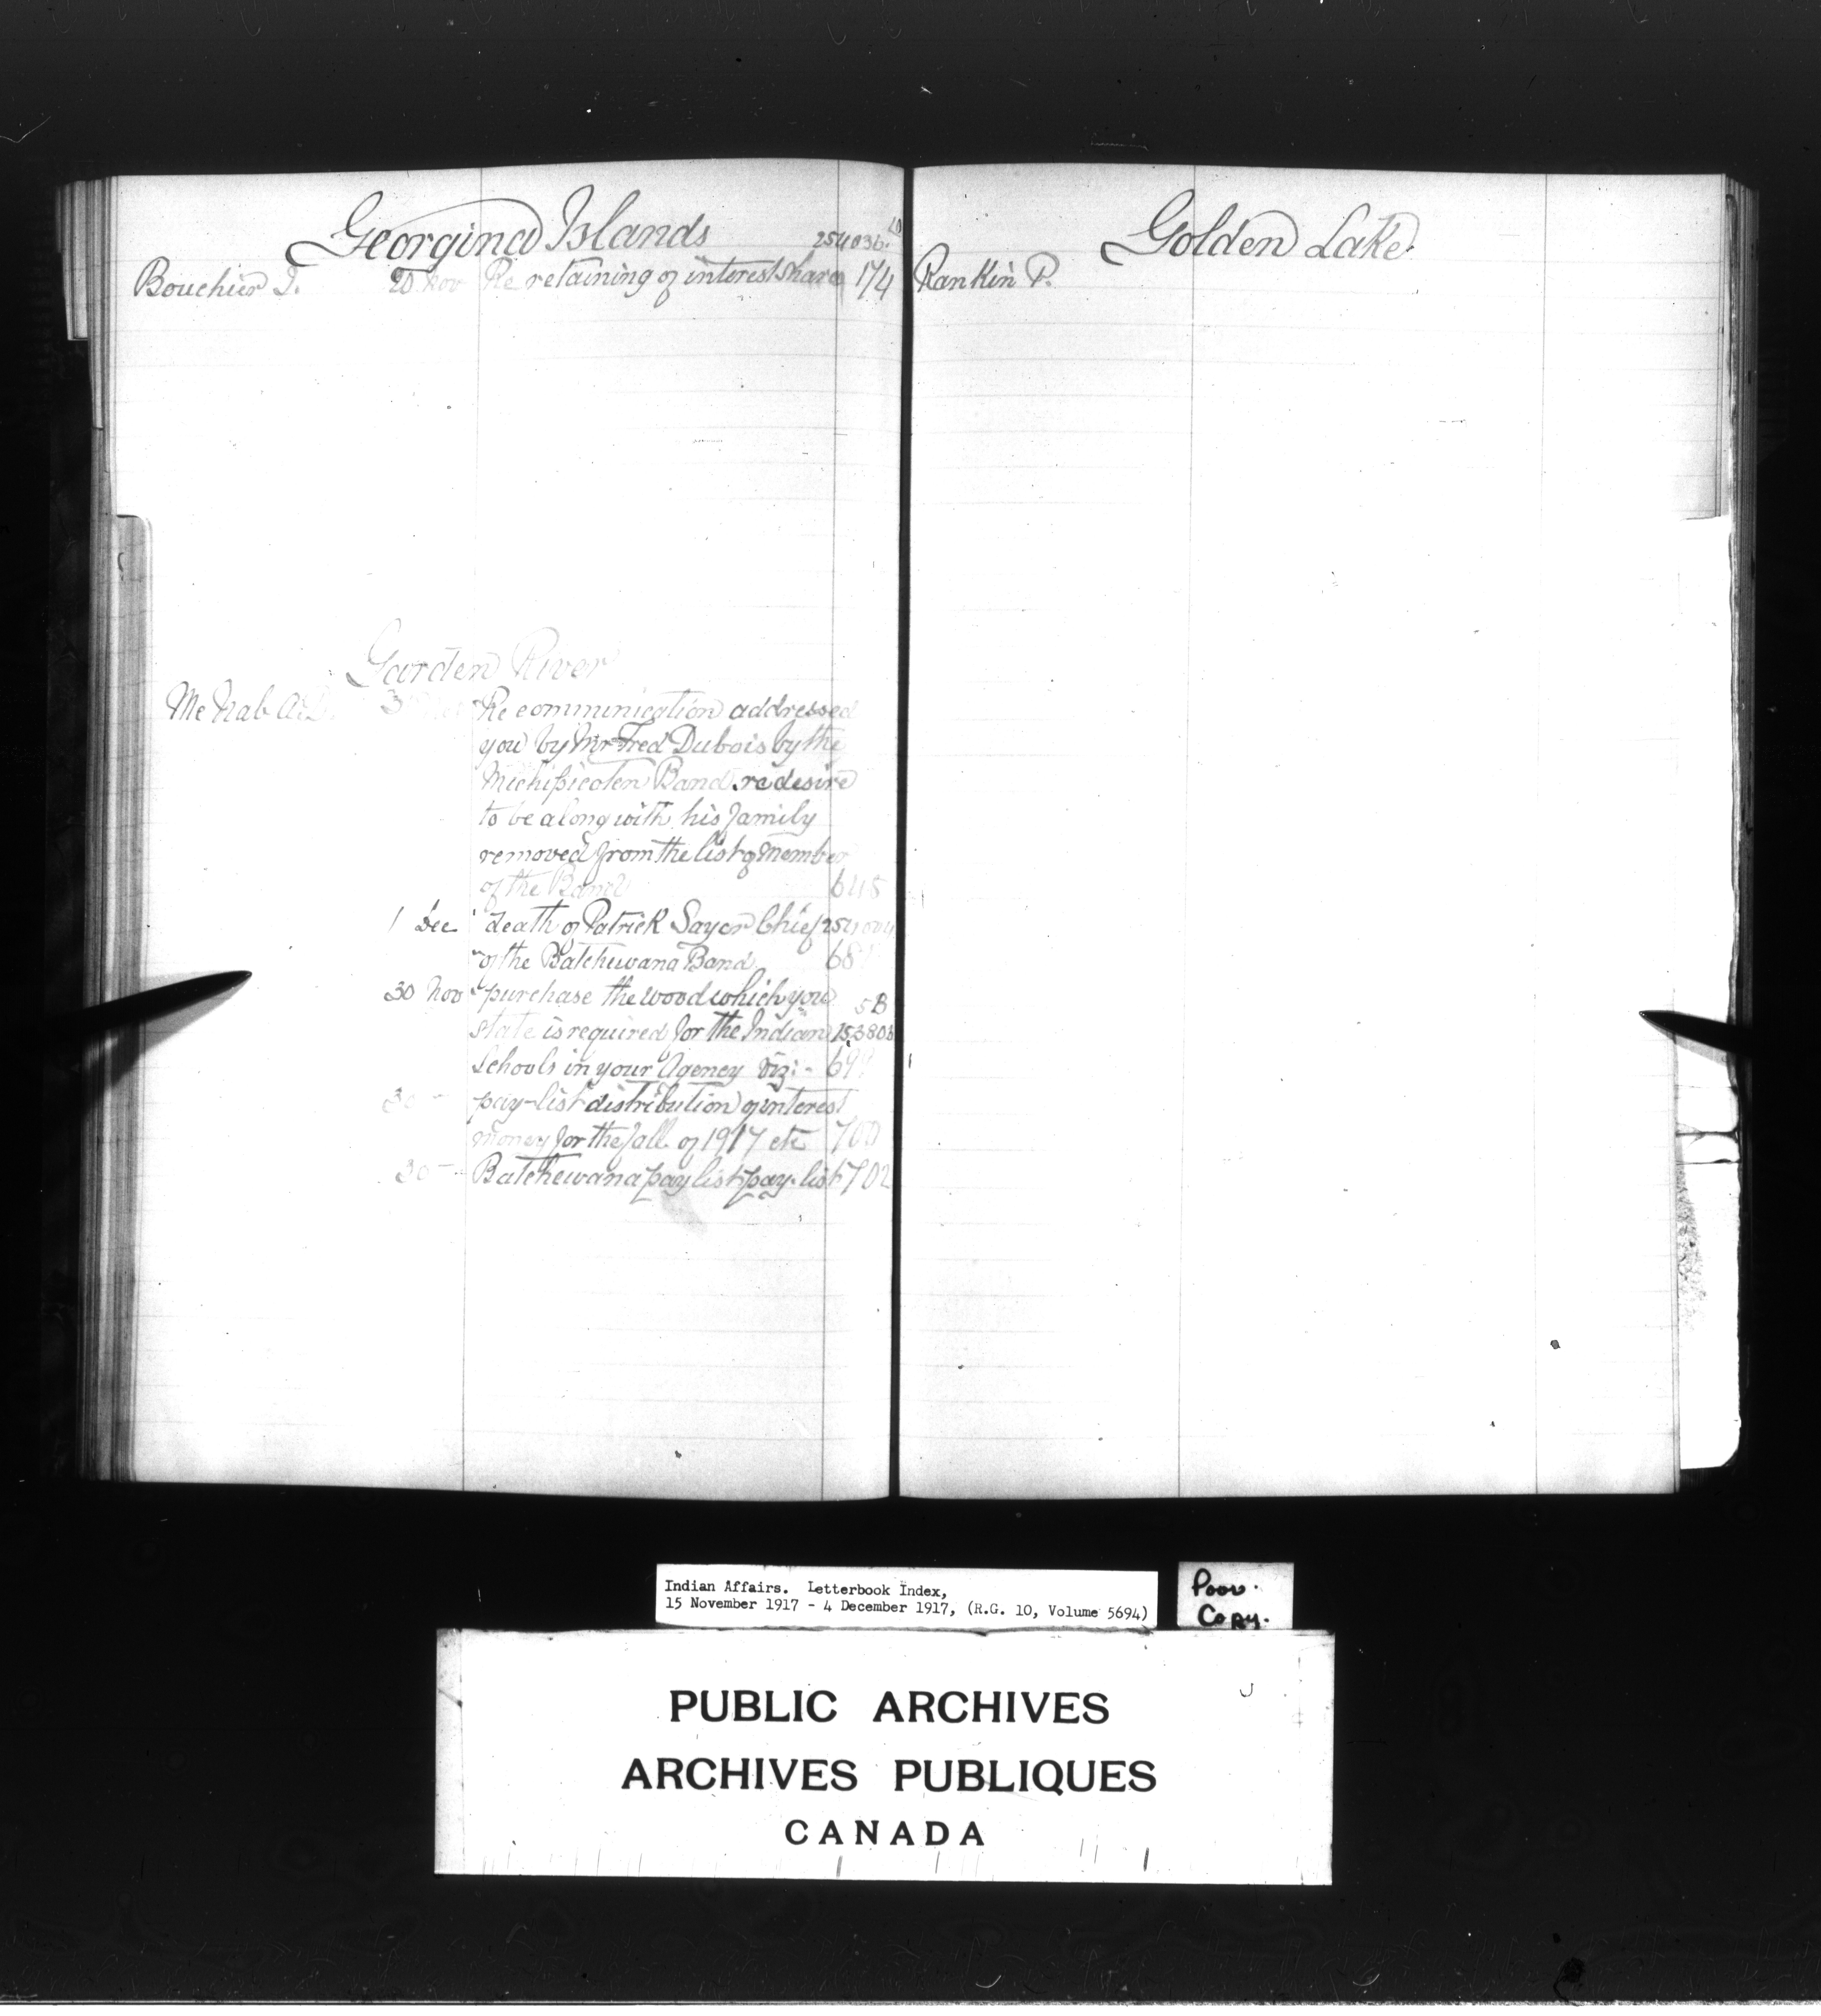 Georgina Islands 254036.
Bouchier J. 20 Nov Re retaining of interest share 174
Garden River
McNab A.D. Re communication addressed
you by Mr Fred Dubois by the
Michipicoten Band re desire
to be along with his family
removed from the list of member
of the Band 645
1 Dec " death of Patrick Sayer Chief
" of the Batchewana Band
30 Nov " purchase the wood which you 5B
state is required for the Indian 153808
Schools in your Agency viz:-
30 - pay-list distribution of interest
money for the fall of 1917 etc 700
30 - Batchewana pay list pay-list 702
Golden Lake
Rankin P.
Indian Affairs. Letterbook Index,
15 November 1917 - 4 December 1917, (R.G. 10, Volume 5694)
Poor
Copy.
PUBLIC ARCHIVES
ARCHIVES PUBLIQUES
CANADA